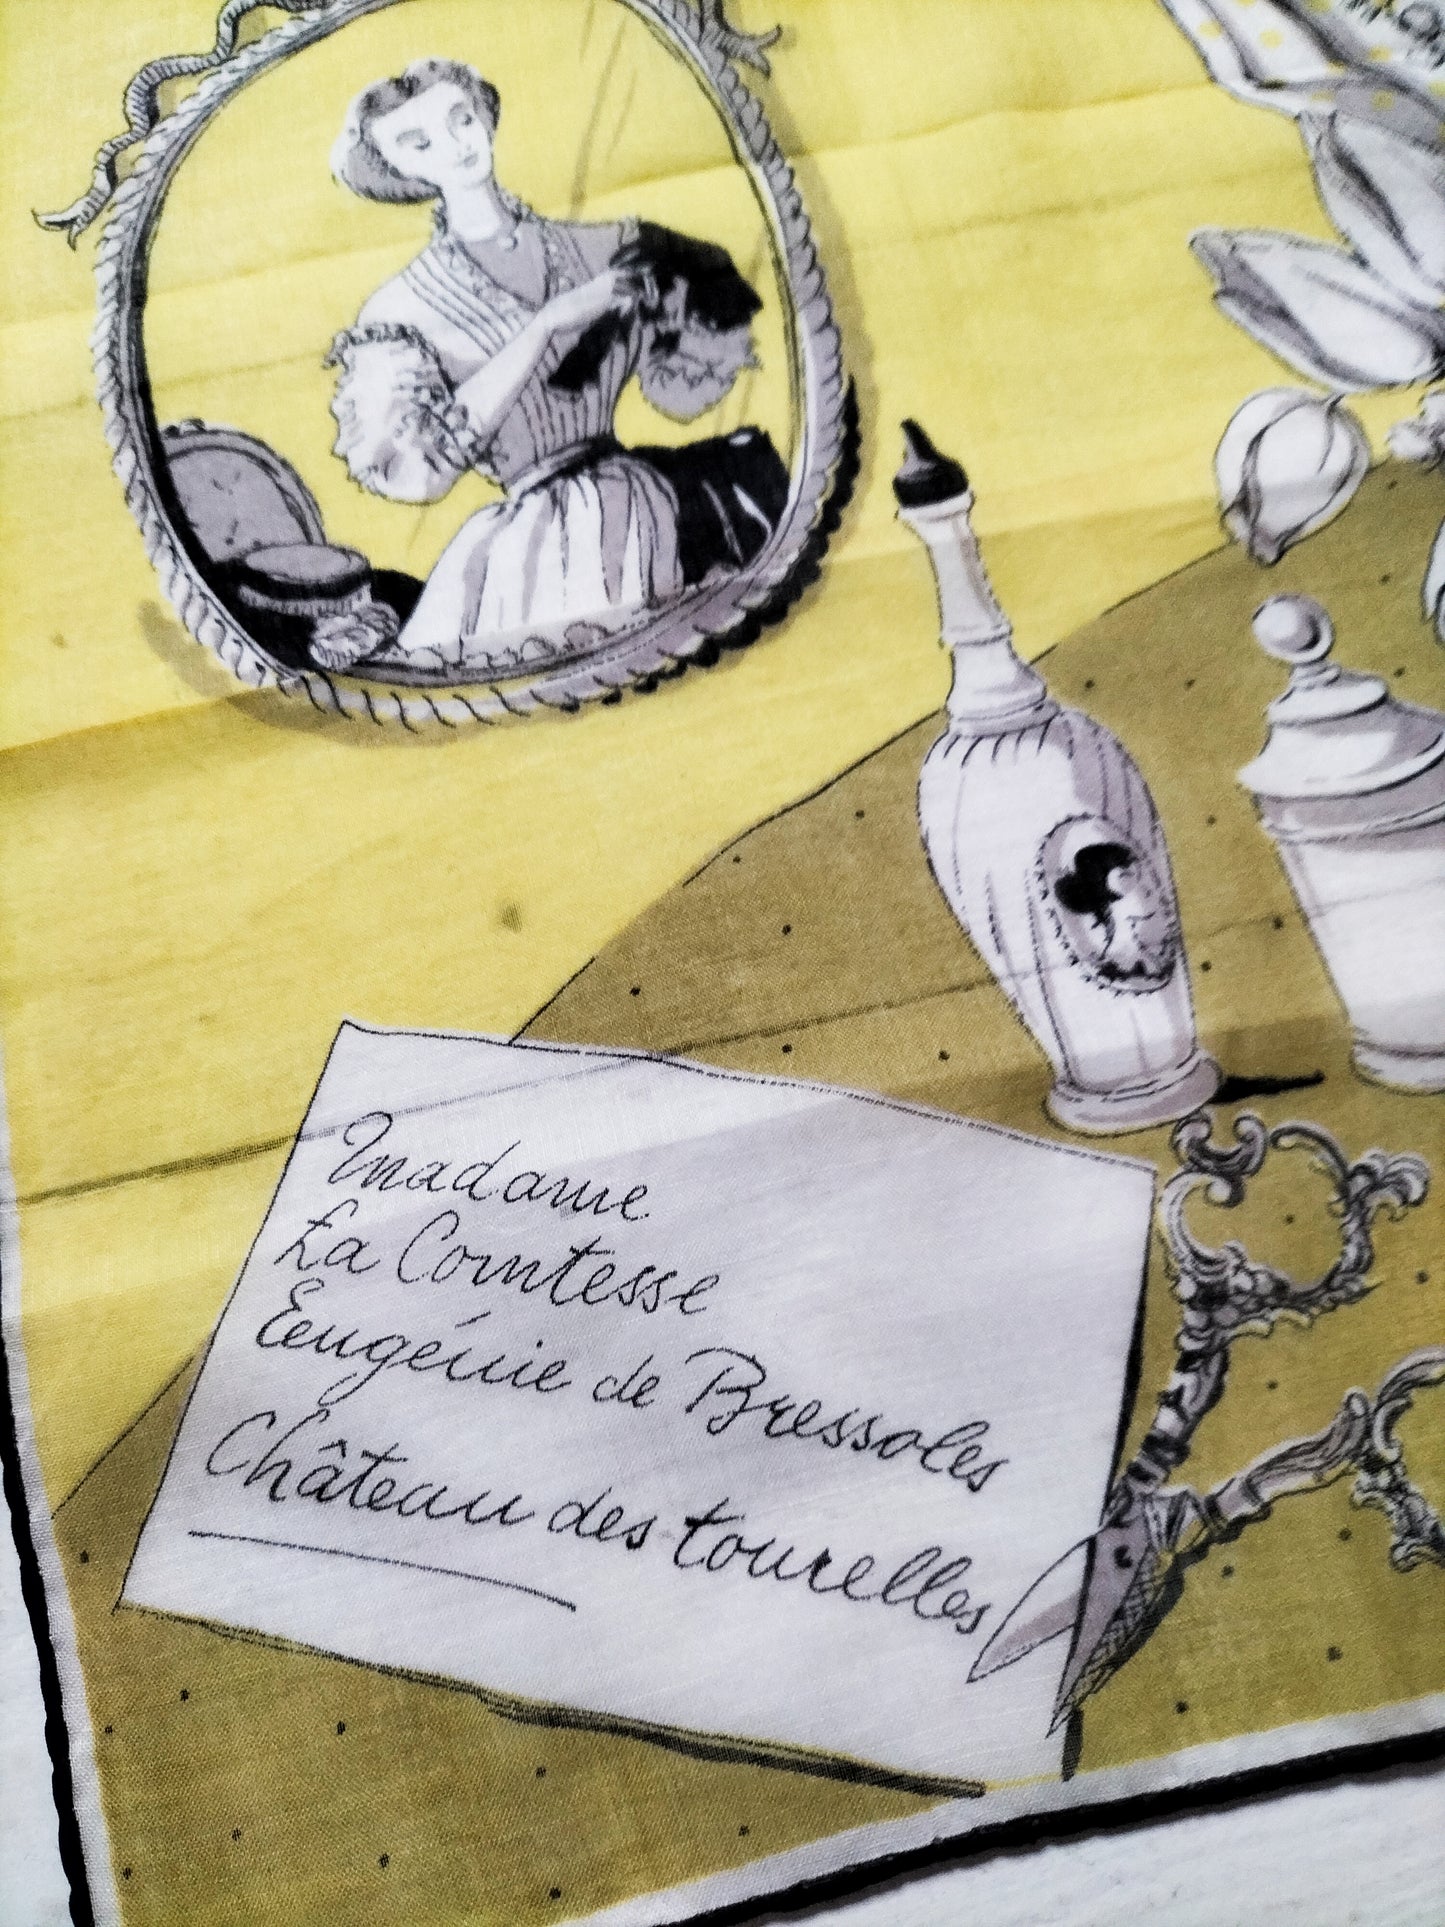 Madame
La Comtesse
Eugénie de Bressoles
Château des tourelles